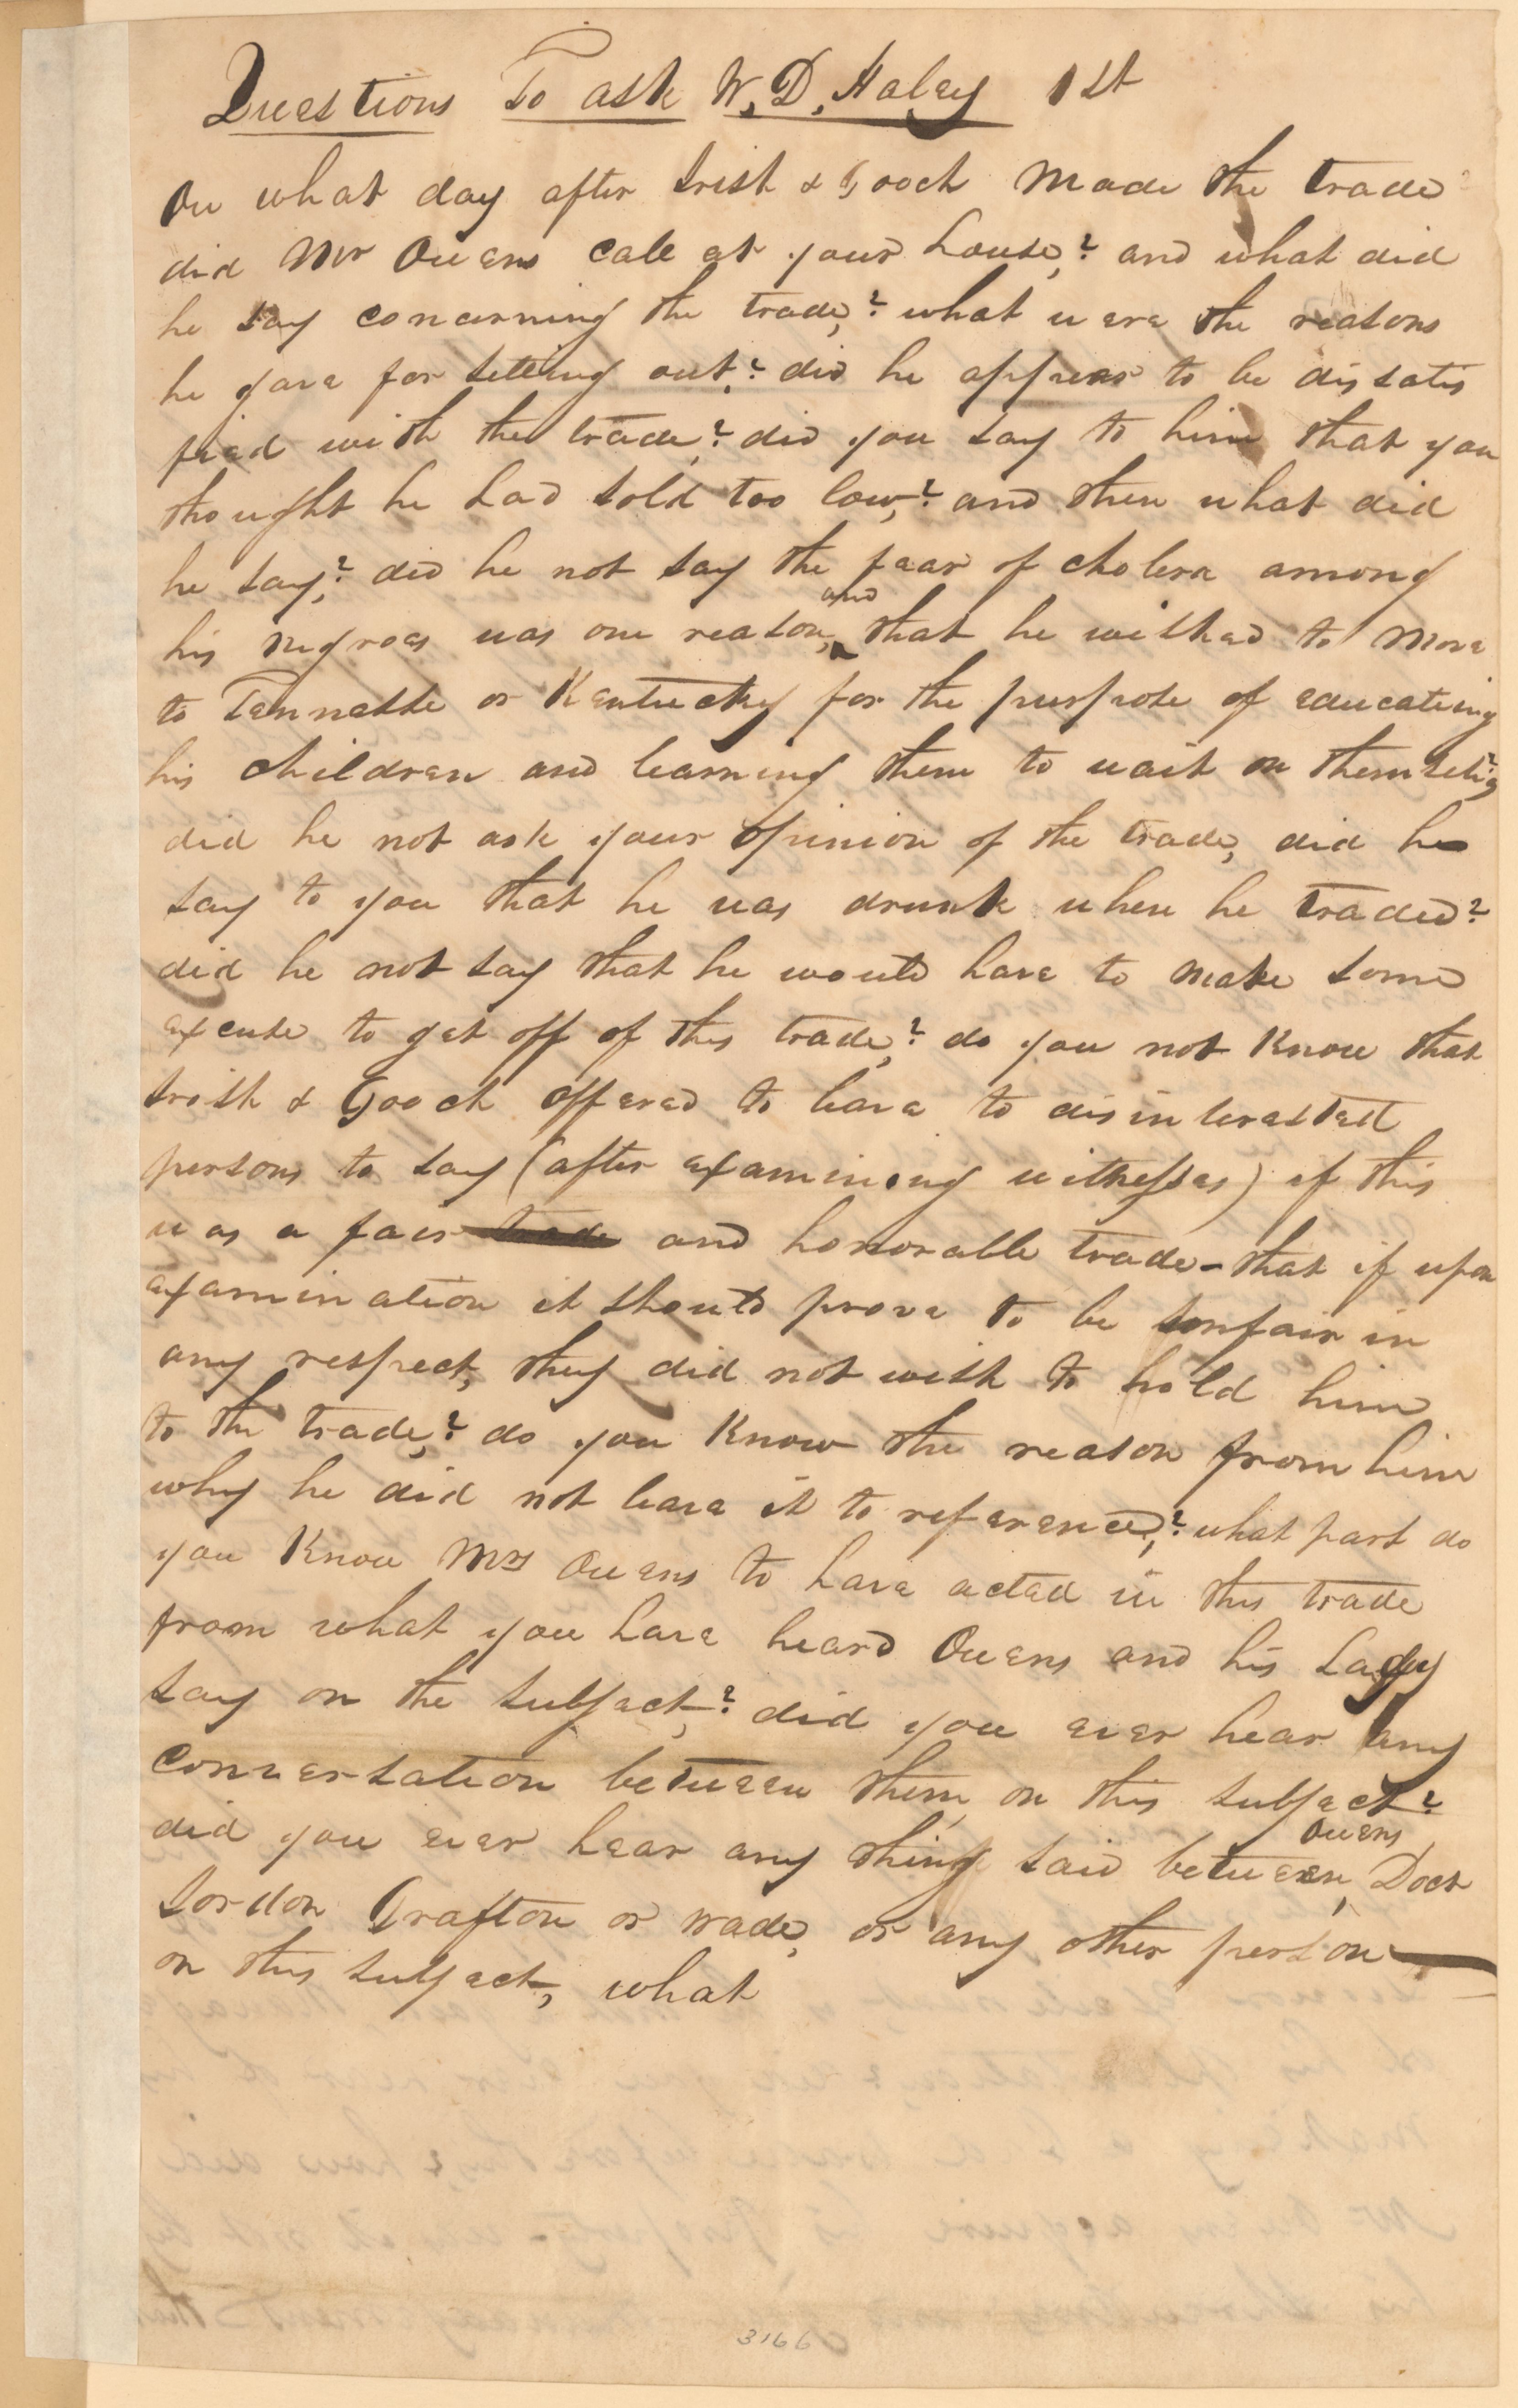 Questions To ask W. D. Haley 1st
On what day after Trist & Gooch made the trade
did Mr Owens call at your house,? and what did
he say concerning the trade,? what were the reasons
he gave for selling out,? did he appear to be dissatis
fied with the trade,? did you say to him that you
thought he had sold too low,? and then what did
he say,? did he not say the fear of cholera among
his negroes was one reason, and that he wished to move
to Tennesse or Kentucky for the purpose of educating
his children and learning them to wait on themselvs,?
did he not ask your opinion of the trade, did he
say to you that he was drunk when he traded?
did he not say that he would have to make some
excuse to get off of this trade,? do you not know that
Trist & Gooch offered to leave to disinterested
persons to say (after examining witnesses) if this
was a fair trade and honorable trade - that if upon
examination it should prove to be unfair in
any respect, they did not wish to hold him
to the trade,? do you know the reason from him
why he did not leave it to reference,? what part do
you know Mrs Owens to have acted in this trade
from what you have heard Owens and his Lady
say on the subject,? did you ever hear any
conversation between them, on this subject?
did you ever hear any thing said between, Owens Doct
Grafton or Wade, or any other person
on this subject, what
3166